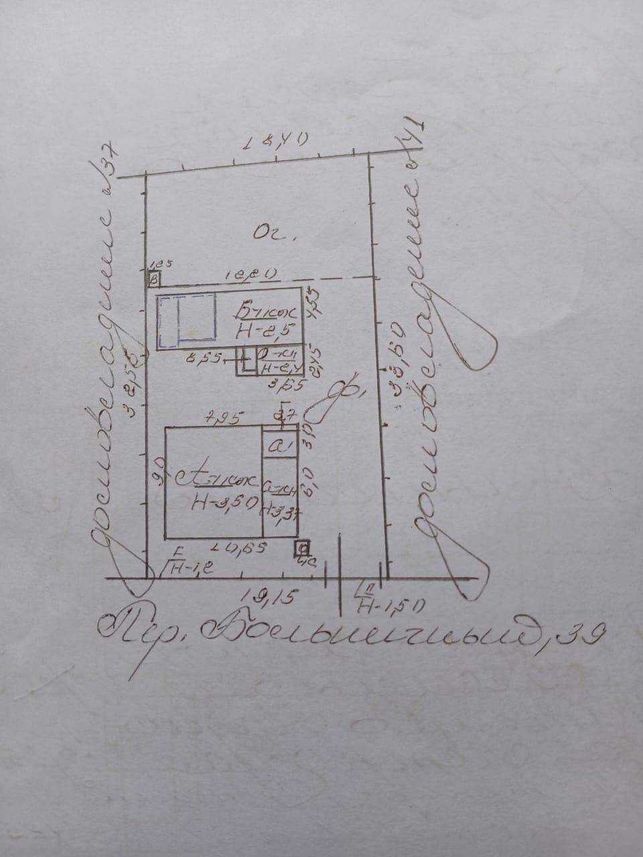 18,40
домовладение №37
домовладение №41
Ог.
12,20
Б-1 кж
Н-2,5
4,55
2,45
8,55
Н-2,4
3,55
дв.
32,55
33,60
7,95
2,7
а1
3,0
9,0
А-1 кж
Н-3,50
Н-3,37
6,0
10,65
I
Н-1,2
19,15
II
Н-1,50
Пр. Больничный, 39